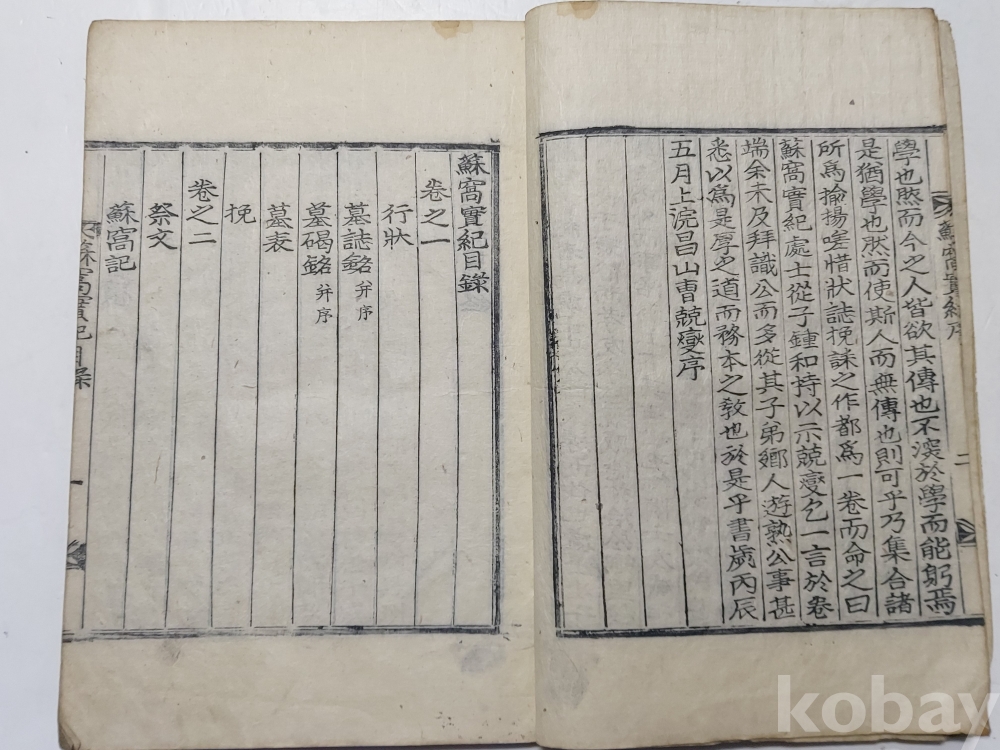 蘇窩實紀序
二
學也然而今之人皆欲其傳也不深於學而能躬焉
是猶學也然而使斯人而無傳也則可乎乃集合諸
所爲揄揚嗟惜狀誌挽誄之作都爲一卷而命之曰
蘇窩實紀處士從子鍾和持以示兢燮乞一言於卷
端余未及拜識公而多從其子弟鄉人遊熟公事甚
悉以爲是厚之道而務本之敎也於是乎書歲丙辰
五月上浣昌山曺兢燮序
蘇窩實紀目錄
卷之一
行狀
墓誌銘 幷序
墓碣銘 幷序
墓表
挽
卷之二
祭文
蘇窩記
蘇窩實紀目錄
一
kobay